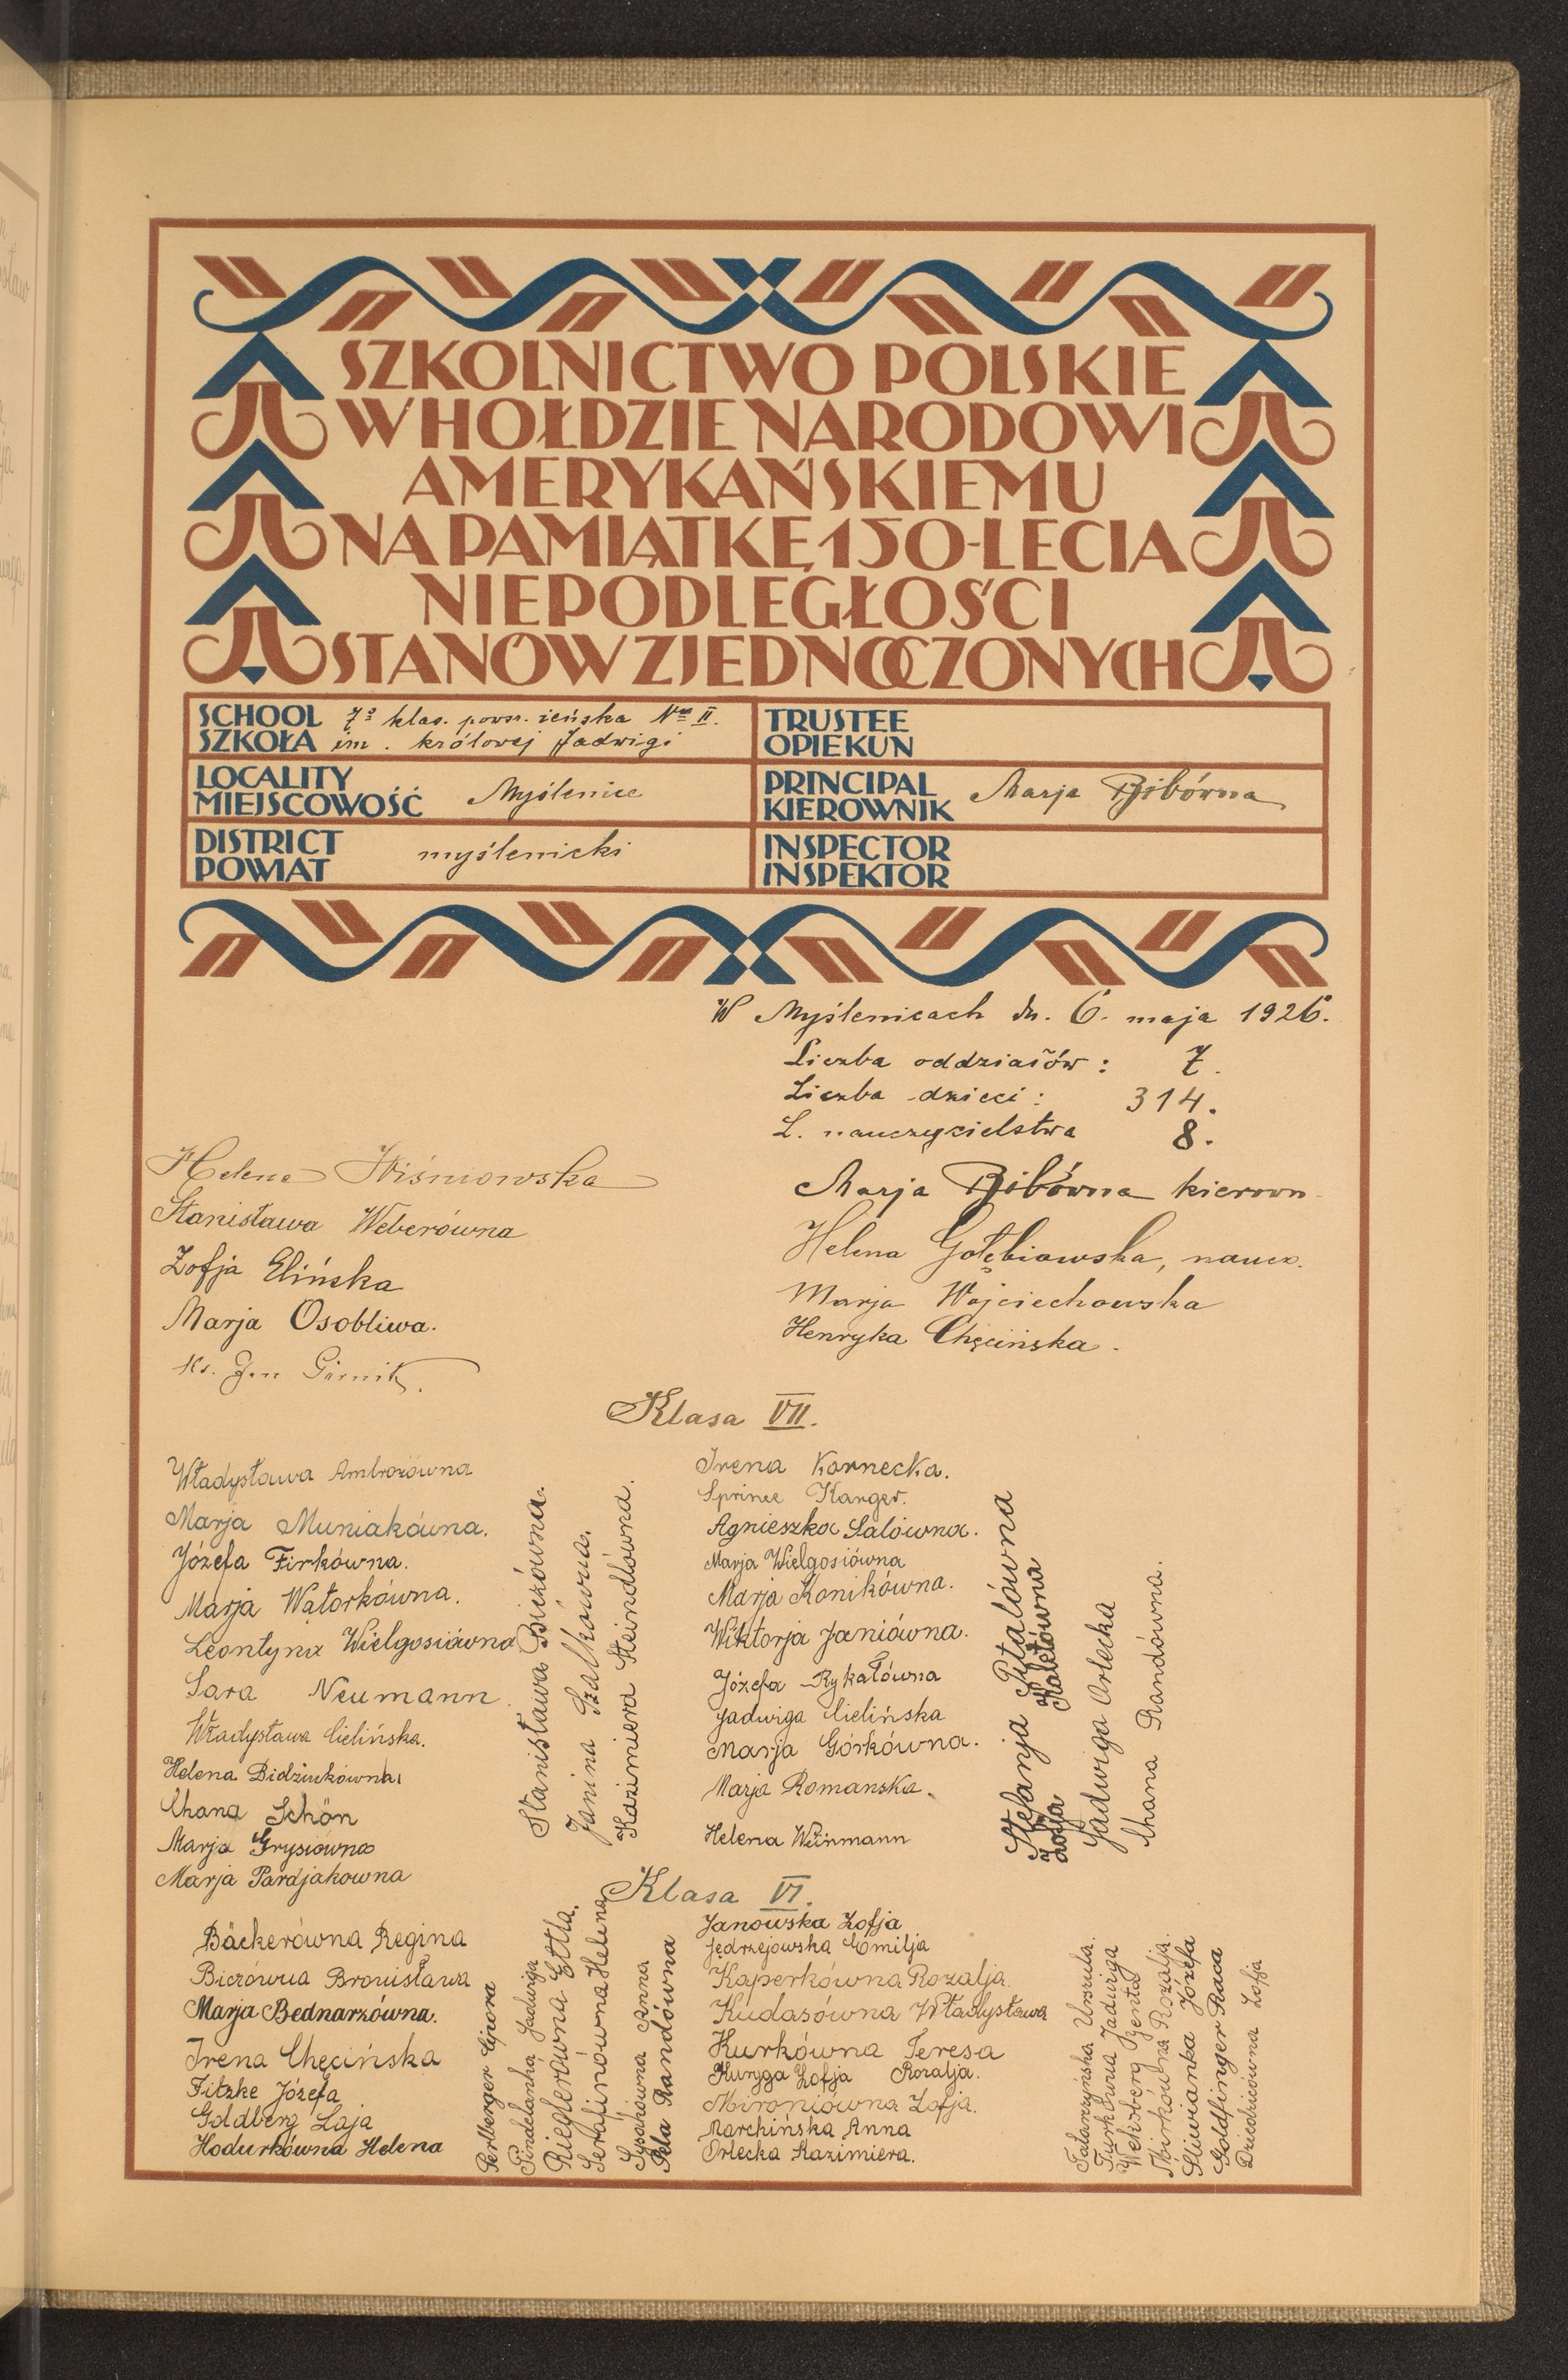 SZKOLNICTWO POLSKIE
W HOŁDZIE NARODOWI
AMERYKAŃSKIEMU
NA PAMIĄTKĘ 150-LECIA
NIEPODLEGŁOŚCI
STANÓW ZJEDNOCZONYCH
SCHOOL
SZKOŁA
7º klas. powsz. żeńska Nro II.
im. królowej Jadwigi
TRUSTEE
OPIEKUN
LOCALITY
MIEJSCOWOŚĆ
Myślenice
PRINCIPAL
KIEROWNIK
Marja Bibówna
DISTRICT
POWIAT
myślenicki
INSPECTOR
INSPEKTOR
W Myślenicach dn. 6. maja 1926.
Liczba oddziałów: 7.
Liczba dzieci: 314.
L. nauczycielstwa 8.
Helena Wiśniowska
Stanisława Weberówna
Zofja Elińska
Marja Osobliwa.
Ks. Jan Górnik.
Marja Bibówna kierown.
Helena Gołębiawska, naucz.
Marja Wojciechowska
Henryka Chęcińska.
Klasa VII.
Władysława Ambrozówna
Marja Muniakówna.
Józefa Firkówna.
Marja Watorkówna.
Leontyna Wielgosiówna
Sara Neumann.
Władysława Cielińska.
Helena Bidzińkówna
Chana Schön
Marja Grysiówna
Marja Pardjakowna
Stanisława Biczówna.
Janina Szalkówna.
Kazimiera Steindlówna.
Irena Karnecka.
Sprince Karger.
Agnieszka Salówna.
Marja Wielgosiówna
Marja Konikówna.
Wiktorja Janiówna.
Józefa Rykałówna
Jadwiga Cielińska
Marja Górkówna.
Marja Romanska.
Helena Weinmann
Stefanja Pitalówna
Zofja Kaletówna
Jadwiga Orlecka
Chana Randówna.
Klasa VI.
Bäckerówna Regina
Biczówna Bronisława
Marja Bednarzówna.
Irena Chęcińska
Fitzke Józefa
Goldberg Laja
Hodurkówna Helena
Perlberger Cipora
Pindelanka Jadwiga
Rieglerówna Ettla.
Serafinówna Helena
Sysakówna Anna
Pela Randówna
Janowska Zofja
Jędrzejowska Emilja
Kaperkówna Rozalja.
Kudasówna Władysława
Kurkówna Teresa
Kuryga Zofja Rozalja.
Mironiówna Zofja.
Marchińska Anna
Orlecka Kazimiera.
Talarzyńska Urszula.
Turkówna Jadwiga
Weksberg Genta
Zbirkówna Rozalja.
Śliwianka Józefa
Goldfinger Raca
Dziedzicówna Zofja